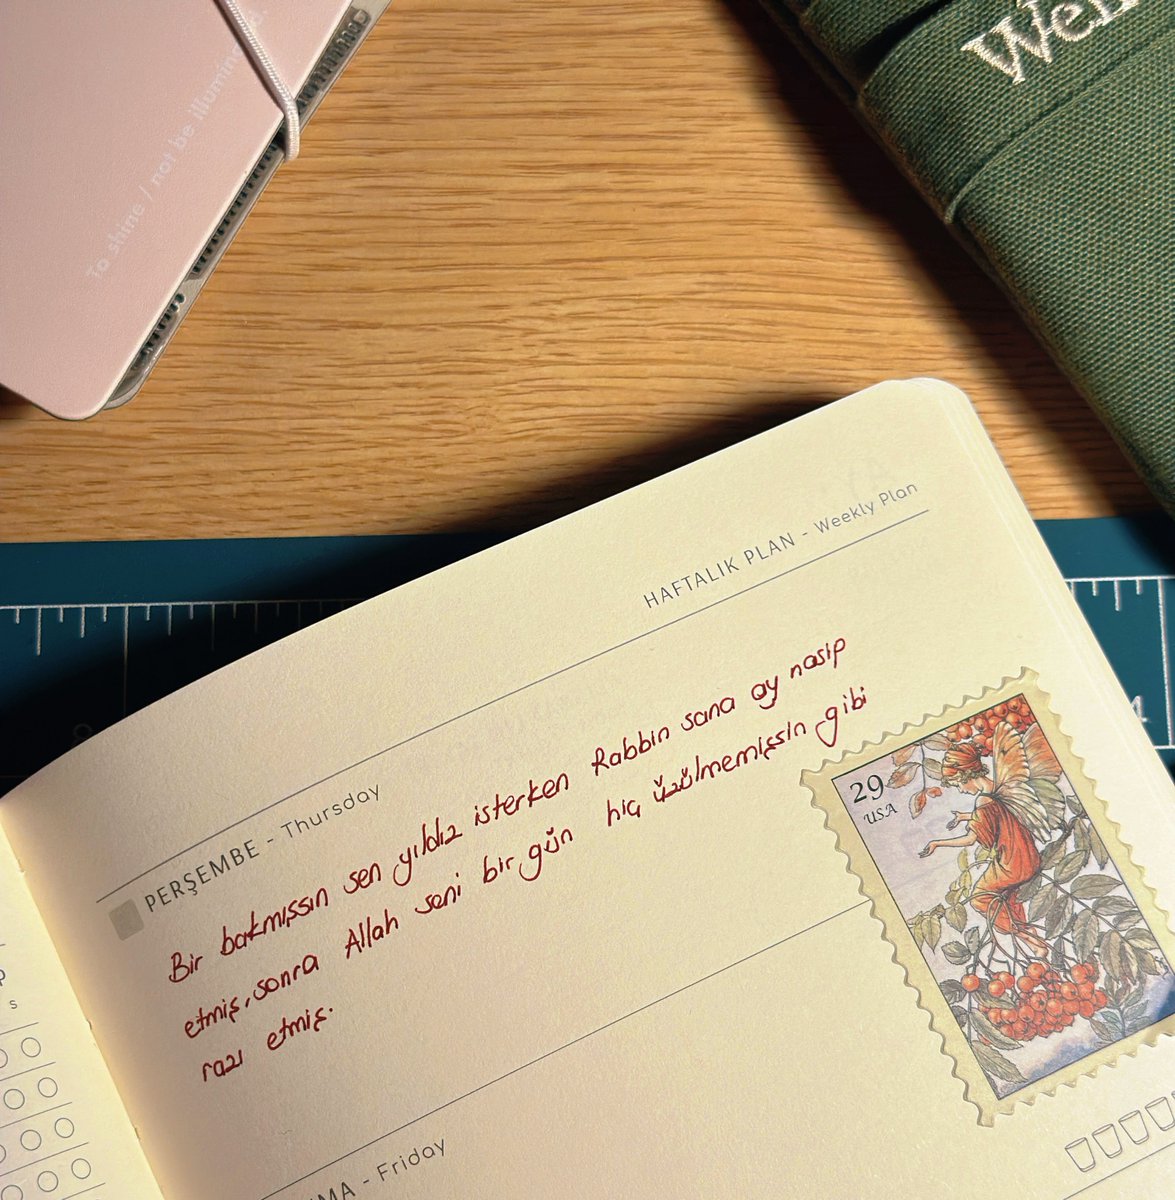 To shine / not be illumin
We
HAFTALIK PLAN - Weekly Plan
PERŞEMBE - Thursday
Bir bakmışsın sen yıldız isterken Rabbin sana ay nasip
etmiş, sonra Allah seni bir gün hiç üzülmemişsin gibi
razı etmiş.
29
USA
MA - Friday
P
S